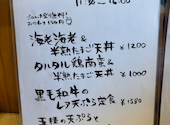 11:30〜16:00
海老海老&
半熟たまご天丼 ¥1200
タルタル鶏南蛮&
半熟たまご天丼 ¥1000
黒毛和牛の
レア天ぷら定食 ¥1580
天ぷらと